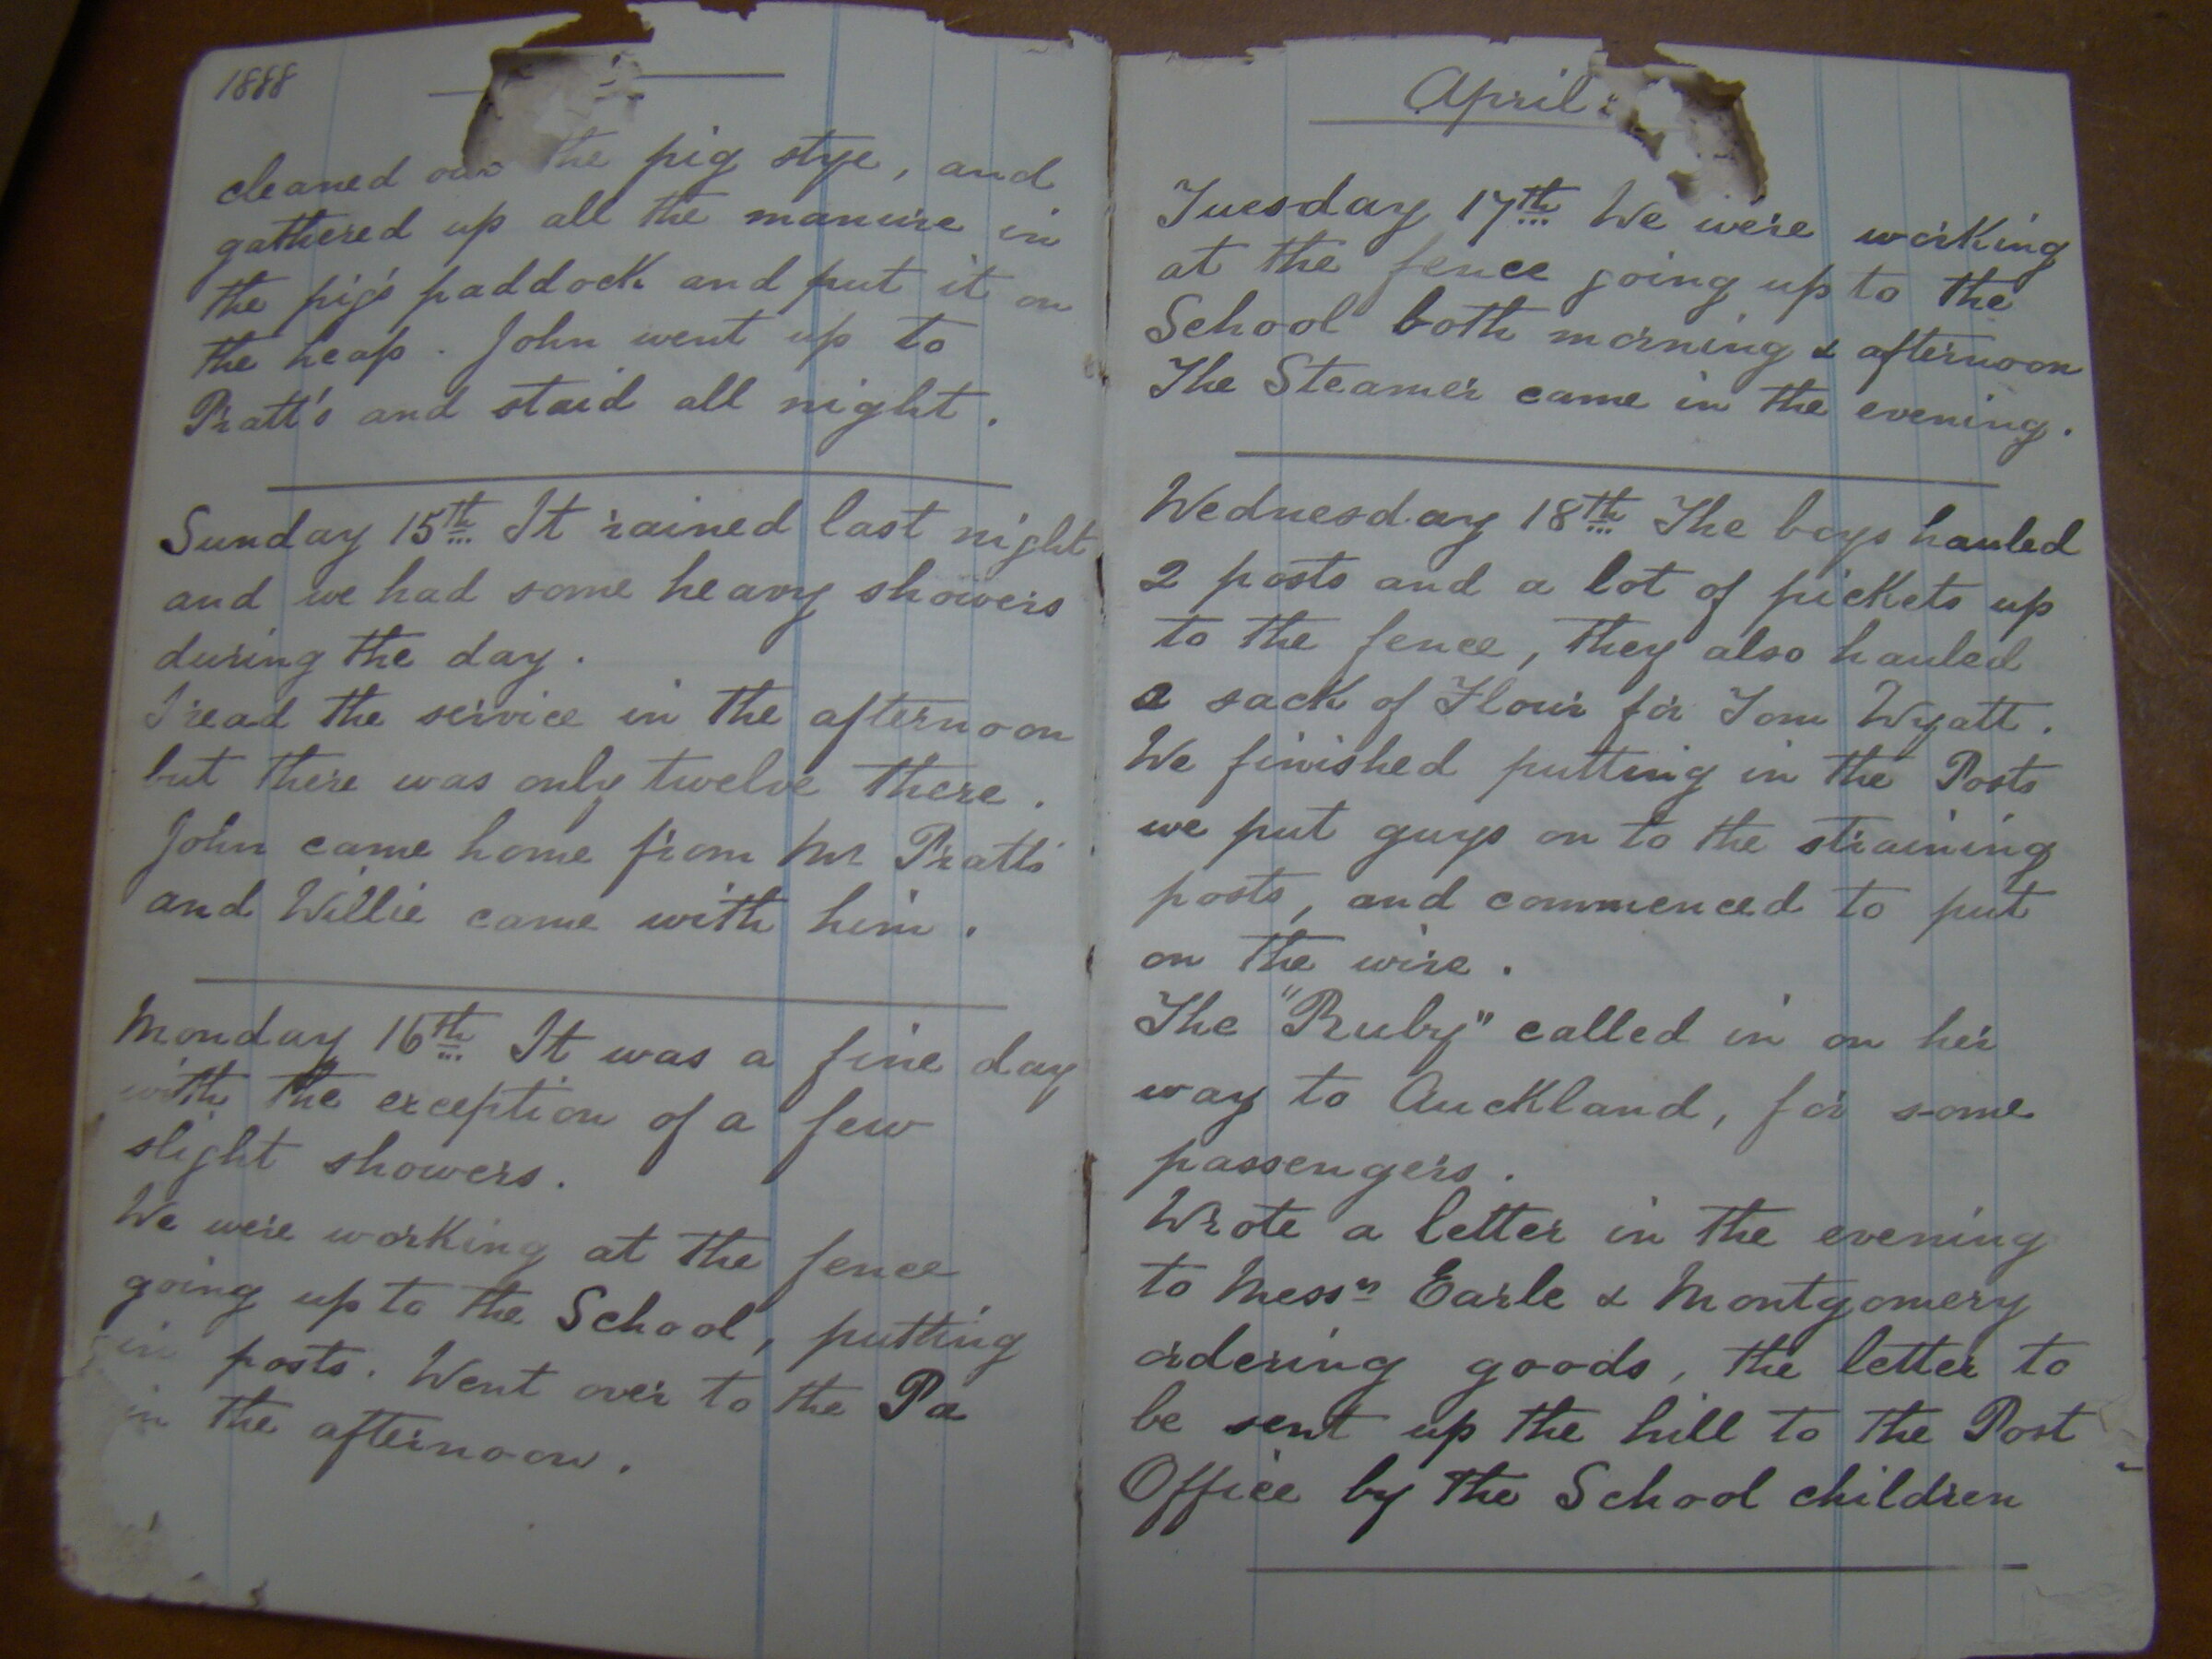 1888
cleaned out the pig stye, and
gathered up all the manure in
the pig's paddock and put it on
the heap. John went up to
Pratt's and staid all night.
Sunday 15th It rained last night
and we had some heavy showers
during the day.
I read the service in the afternoon
but there was only twelve there.
John came home from Mr Pratts
and Willie came with him.
Monday 16th It was a fine day
with the exception of a few
slight showers.
We were working at the fence
going up to the School, putting
in posts. Went over to the Pa
in the afternoon.
April:
Tuesday 17th We were working
at the fence going up to the
School both morning & afternoon
The Steamer came in the evening.
Wednesday 18th The boys hauled
2 posts and a lot of pickets up
to the fence, they also hauled
a sack of Flour for Tom Wyatt.
We finished putting in the Posts
we put guys on to the straining
posts, and commenced to put
on the wire.
The "Ruby" called in on her
way to Auckland, for some
passengers.
Wrote a letter in the evening
to Messrs Earle & Montgomery
ordering goods, the letter to
be sent up the hill to the Post
Office by the School children